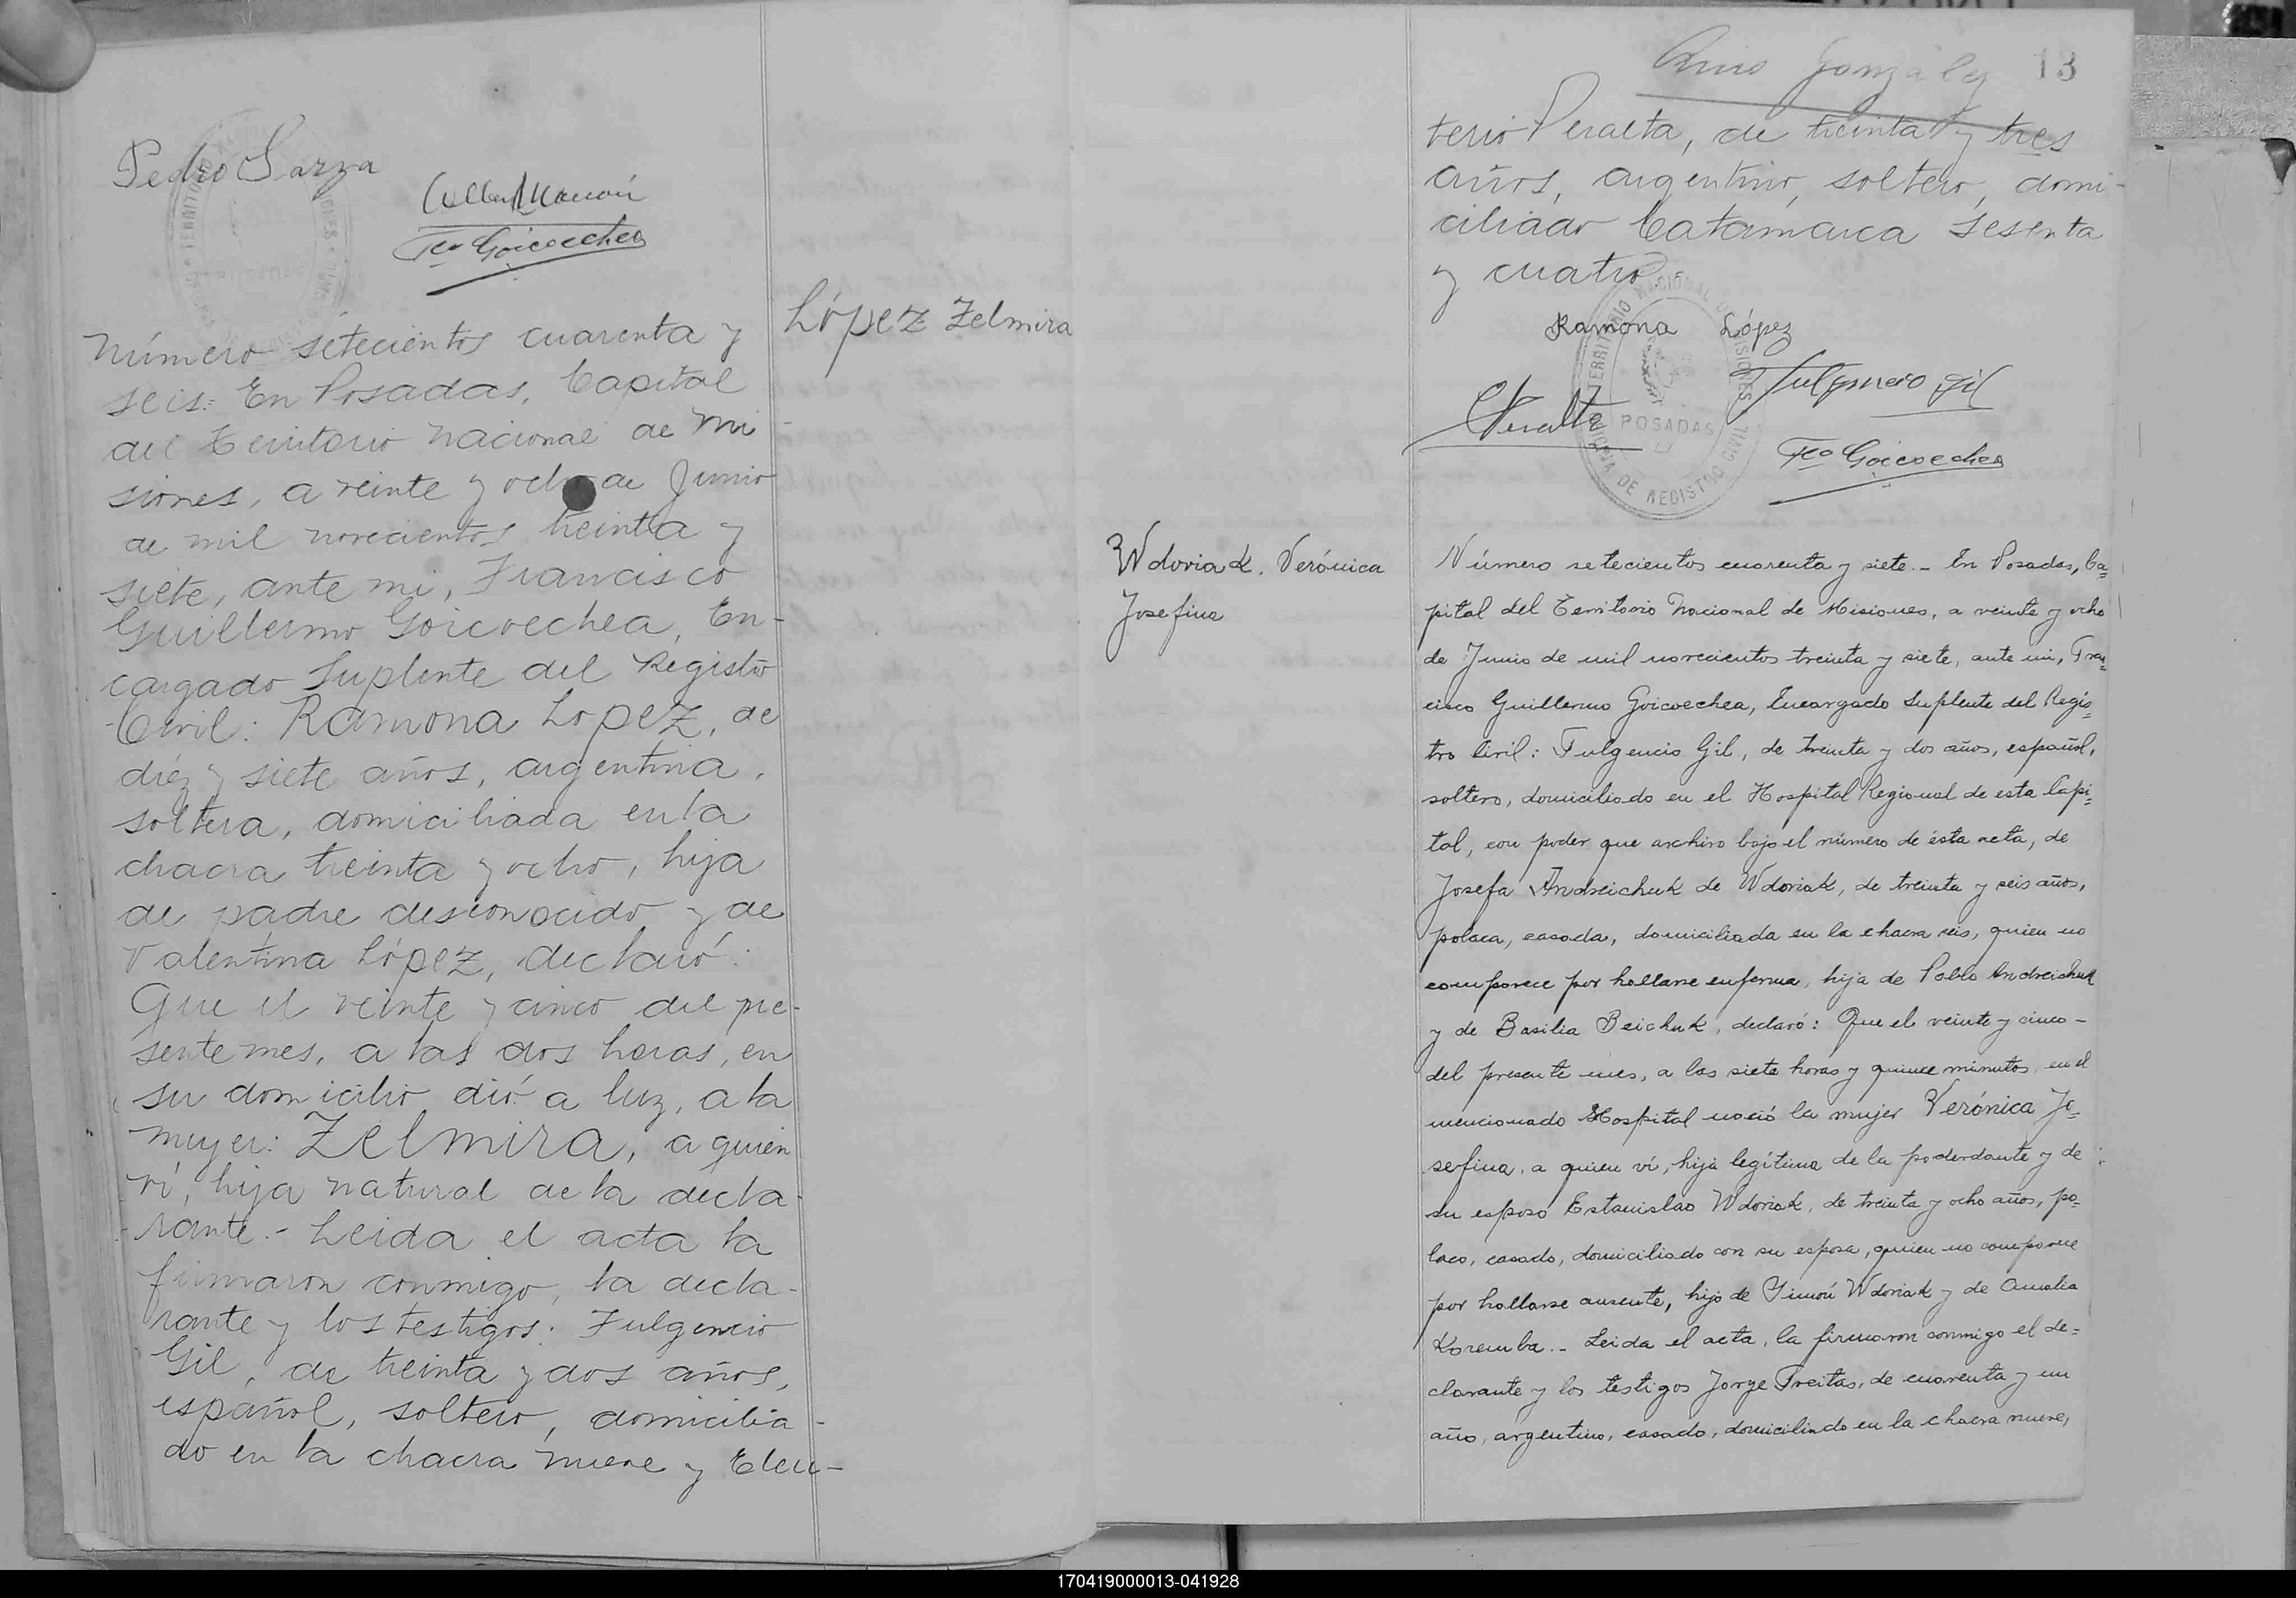 Pedro Sarza
Fco Goicoechea
López Zelmira
Número setecientos cuarenta y
seis: En Posadas, Capital
del Territorio Nacional de Mi
siones, a veinte y ocho de Junio
de mil novecientos treinta y
siete, ante mi, Francisco
Guillermo Goicoechea, En-
cargado Suplente del Registro
Civil: Ramona Lopez, de
diéz y siete años, argentina,
soltera, domiciliada en la
chacra treinta y ocho, hija
de padre desconocido y de
Valentina López, declaró:
Que el veinte y cinco del pre-
sente mes, a las dos horas, en
su domicilio dió a luz, a la
mujer: Zelmira, a quien
ví, hija natural de la decla-
rante.- Leida el acta la
firmaron conmigo, la decla-
rante y los testigos: Fulgencio
Gil, de treinta y dos años,
español, soltero, domicilia-
do en la chacra nueve y Eleu-
González 13
terio Peralta, de treinta y tres
años, argentino, soltero, domi-
ciliado Catamarca sesenta
y cuatro
Ramona López
Fulgencio Gil
Peralta
Fco Goicoechea
TERRITORIO NACIONAL DE MISIONES
POSADAS
OFICINA DE REGISTRO CIVIL
Wdoviak. Verónica
Josefina
Número setecientos cuarenta y siete.- En Posadas, Ca=
pital del Territorio Nacional de Misiones, a veinte y ocho
de Junio de mil novecientos treinta y siete, ante mi, Fran=
cisco Guillermo Goicoechea, Encargado Suplente del Regis=
tro Civil: Fulgencio Gil, de treinta y dos años, español,
soltero, domiciliado en el Hospital Regional de esta Capi=
tal, con poder que archivo bajo el número de ésta acta, de
Josefa Andreichuk de Wdoviak, de treinta y seis años,
polaca, casada, domiciliada en la chacra seis, quien no
comparece por hallarse enferma, hija de Pablo Andreichuk
y de Basilia Beichuk, declaró: Que el veinte y cinco -
del presente mes, a las siete horas y quince minutos, en el
mencionado Hospital nació la mujer Verónica Jo=
sefina, a quien ví, hija legítima de la poderdante y de
su esposo Estanislao Wdoviak, de treinta y ocho años, po=
laco, casado, domiciliado con su esposa, quien no comparece
por hallarse ausente, hijo de Simón Wdoviak y de Amalia
Koremba.- Leida el acta, la firmaron conmigo el de=
clarante y los testigos Jorge Freitas, de cuarenta y un
año, argentino, casado, domiciliado en la chacra nueve,
170419000013-041928